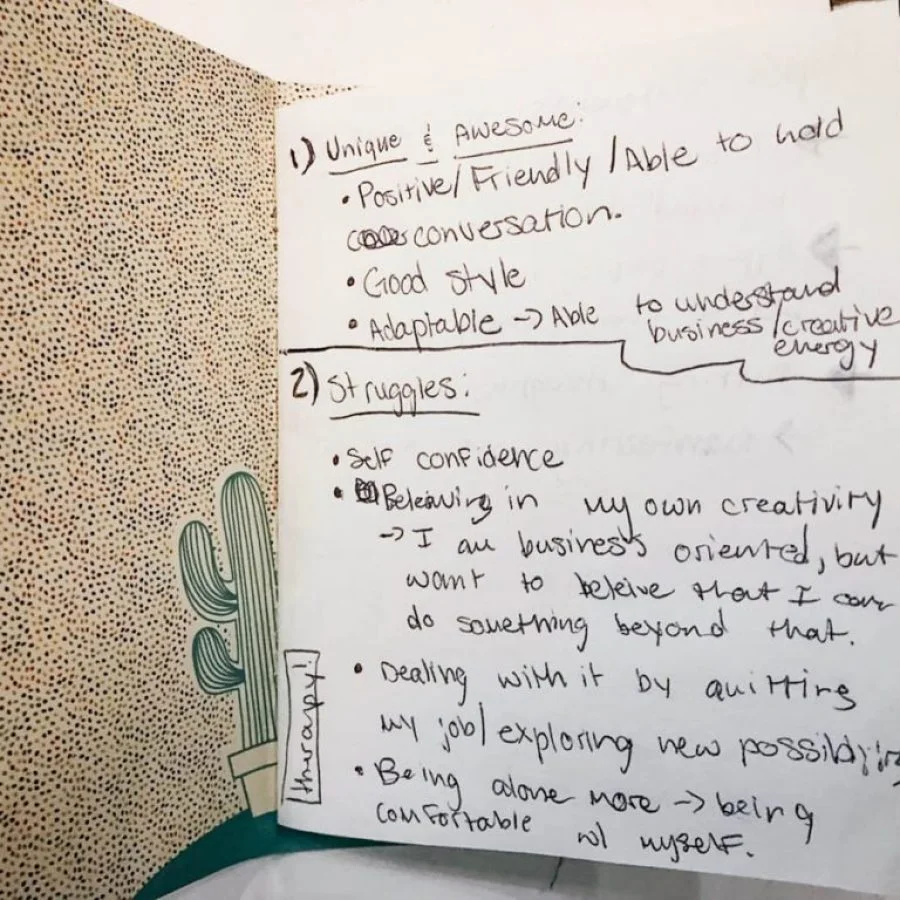 1) Unique & Awesome:
• Positive/Friendly/Able to hold
conversation.
• Good style
• Adaptable -> Able to understand
business/creative
energy
2) Struggles:
• Self confidence
• Beleiving in my own creativity
-> I am business oriented, but
want to beleive that I can
do something beyond that.
• Dealing with it by quitting
my job/exploring new
• Being alone more -> being
comfortable w/ myself.
therapy!